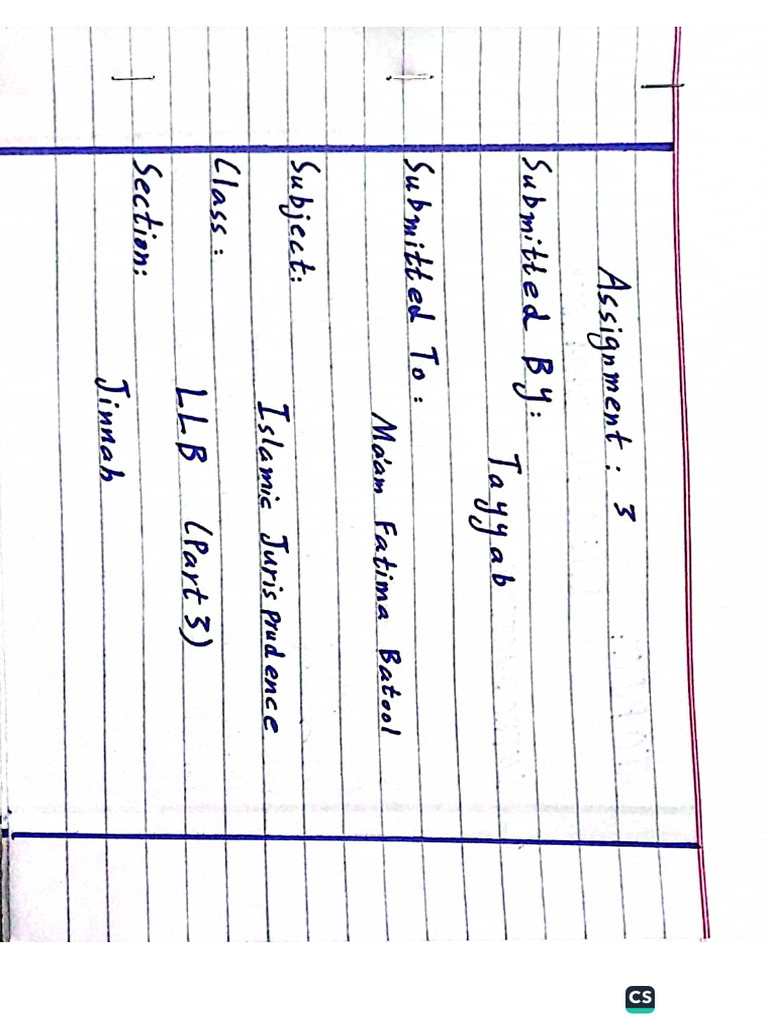 Assignment : 3
Submitted By:
Tayyab
Submitted To :
Ma'am Fatima Batool
Subject:
Islamic Jurisprudence
Class :
LLB (Part 3)
Section:
Jinnah
CS